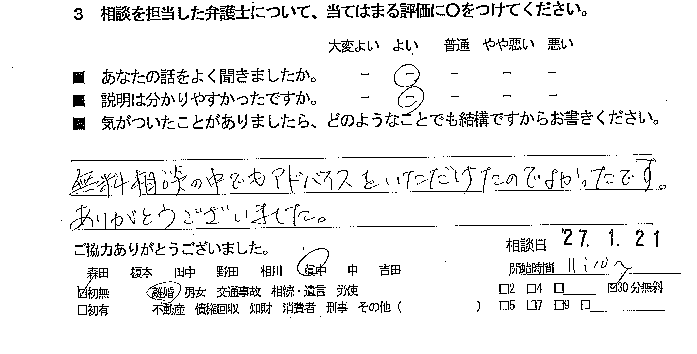 3 相談を担当した弁護士について、当てはまる評価に○をつけてください。
大変よい よい 普通 やや悪い 悪い
■ あなたの話をよく聞きましたか。 － － － － －
■ 説明は分かりやすかったですか。 － － － － －
■ 気がついたことがありましたら、どのようなことでも結構ですからお書きください。
無料相談の中でもアドバイスをいただけたのでよかったです。
ありがとうございました。
ご協力ありがとうございました。
相談日 '27. 1. 21
森田 榎本 田中 野田 相川 畑中 中 吉田
開始時間 11:10
☑初無 離婚 男女 交通事故 相続・遺言 労使
□2 □4 □ ☑30分無料
□初有 不動産 債権回収 知財 消費者 刑事 その他（ ）
□5 □7 □9 □